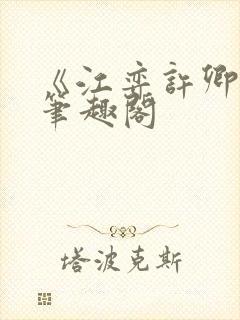 《江弈許卿
筆趣閣
塔波克斯